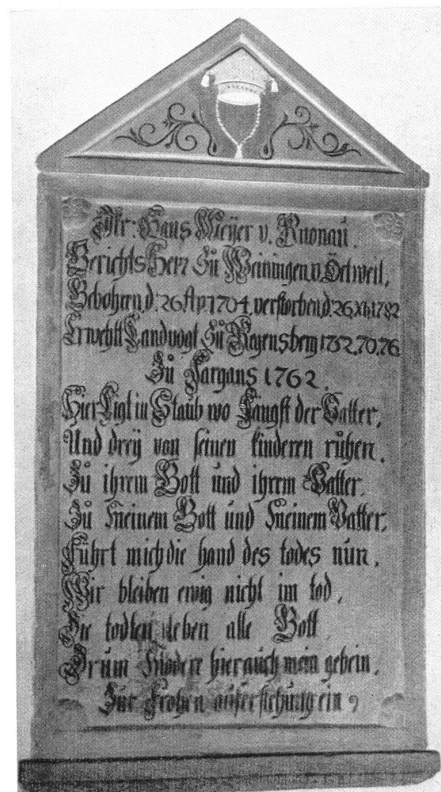 Jkr: Hans Meÿer v. Knonau.
Gerichts Herr Zu Weiningen u. Öetweil,
Gebohren d: 26 Ap. 1704, verstorben d: 26 1782
Erwehlt Landvogt Zu Regensberg 1752, 70, 76
Zu Sargans 1762.
Hier Ligt in Staub wo Längst der Vatter,
Und dreÿ von seinen kinderen ruhen.
Zu ihrem Gott und ihrem Vatter.
Zu meinem Gott und meinem Vatter,
Führt mich die hand des todes nun,
Wir bleiben ewig nicht im tod,
Die todten leben alle Gott
Drum hier auch mein gebein,
Zur Frohen auferstehung ein